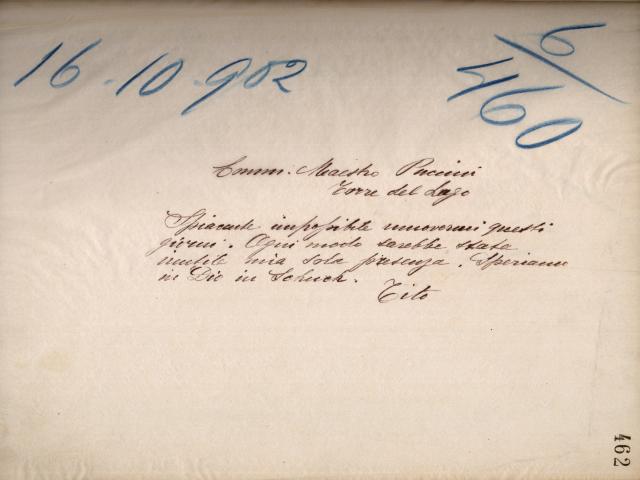 16.10.902
6/460
Comm. Maestro Puccini
Torre del Lago
Spiacente impossibile muovermi questi
giorni. Ogni modo sarebbe stata
inutile mia sola presenza. Speriamo
in Dio in Schuch.
Tito
462